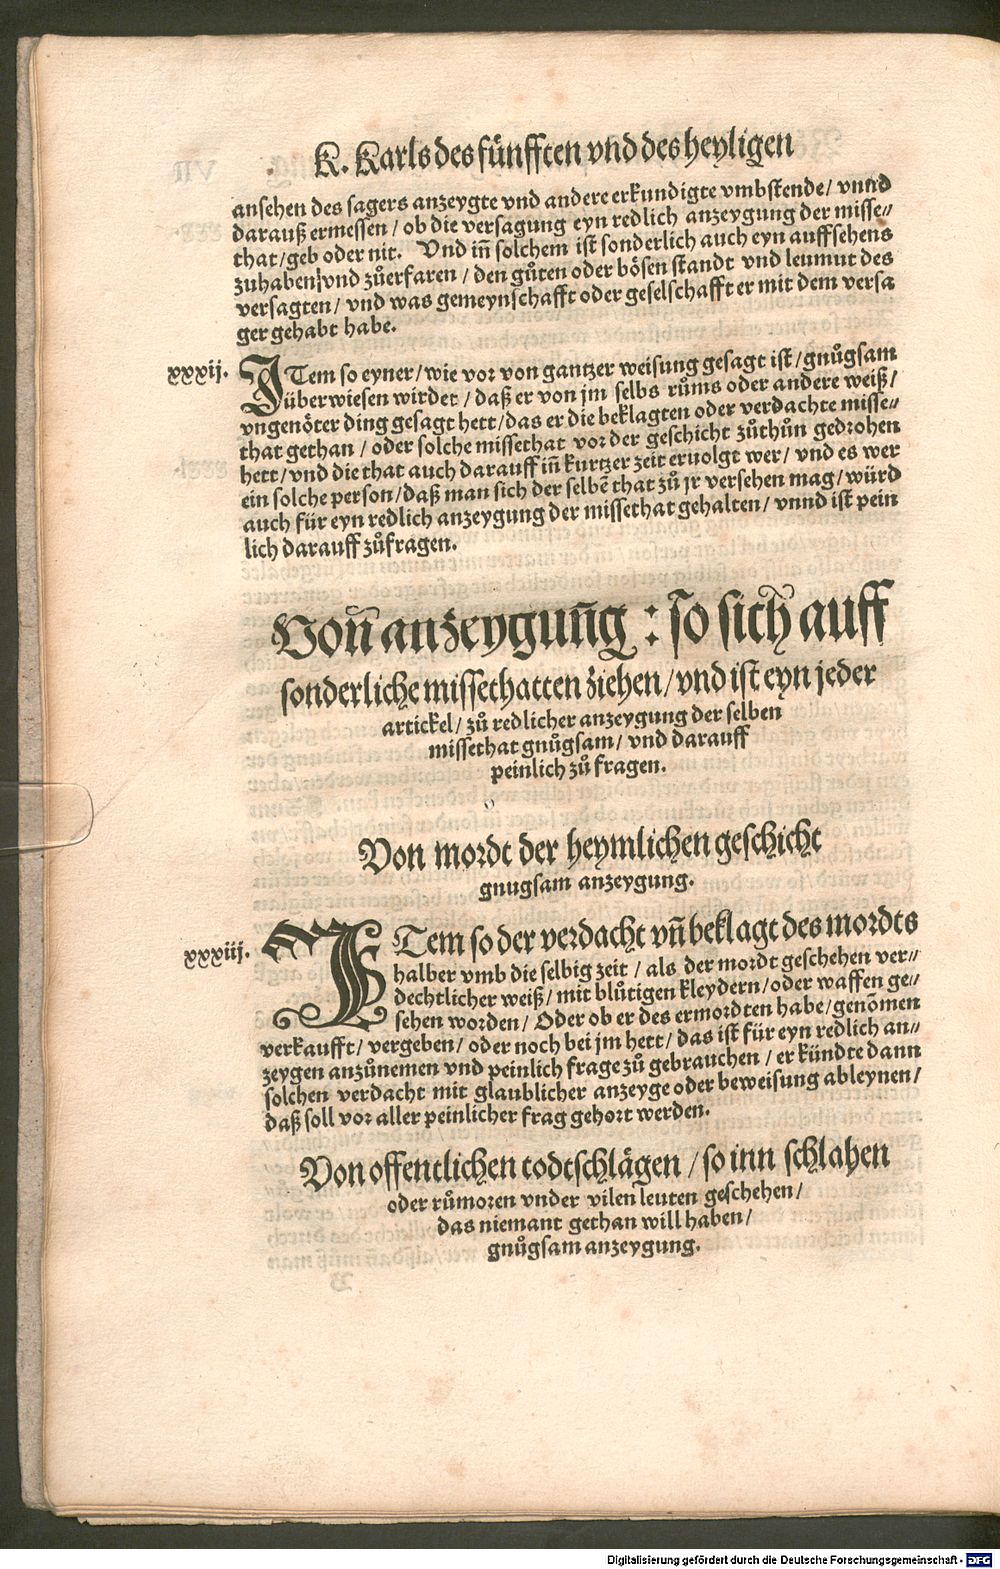 K. Karls des fünfften vnd des heyligen
ansehen des sagers anzeygte vnd andere erkundigte vmbstende/ vnnd
darauß ermessen/ ob die versagung eyn redlich anzeygung der misse⸗
that/geb oder nit. Vnd iñ solchem ist sonderlich auch eyn auffsehens
zuhaben/vnd zůerfaren/ den gůten oder bösen standt vnd leumut des
versagten/ vnd was gemeynschafft oder geselschafft er mit dem versa
ger gehabt habe.
xxxij.
ITem so eyner/wie vor von gantzer weisung gesagt ist/gnůgsam
überwiesen wirdet/daß er von jm selbs růms oder andere weiß/
vngenöter ding gesagt hett/das er die beklagten oder verdachte misse⸗
that gethan/ oder solche missethat vor der geschicht zůthůn gedrohen
hett/vnd die that auch darauff iñ kurtzer zeit eruolgt wer/ vnd es wer
ein solche person/daß man sich der selbē that zů jr versehen mag/würd
auch für eyn redlich anzeygung der missethat gehalten/ vnnd ist pein
lich darauff zůfragen.
Voñ anzeyguñg : so sich auff
sonderliche missethatten ziehen/vnd ist eyn jeder
artickel/ zů redlicher anzeygung der selben
missethat gnůgsam/ vnd darauff
peinlich zů fragen.
Von mordt der heymlichen geschicht
gnugsam anzeygung.
xxxiij.
ITem so der verdacht vñ beklagt des mordts
halber vmb die selbig zeit/ als der mordt geschehen ver⸗
dechtlicher weiß/ mit blůtigen kleydern/oder waffen ge⸗
sehen worden/ Oder ob er des ermordten habe/genōmen
verkaufft/ vergeben/ oder noch bei jm hett/ das ist für eyn redlich an⸗
zeygen anzůnemen vnd peinlich frage zů gebrauchen/ er kündte dann
solchen verdacht mit glaublicher anzeyge oder beweisung ableynen/
daß soll vor aller peinlicher frag gehort werden.
Von offentlichen todtschlägen/ so inn schlahen
oder růmoren vnder vilen leuten geschehen/
das niemant gethan will haben/
gnůgsam anzeygung.
Digitalisierung gefördert durch die Deutsche Forschungsgemeinschaft - DFG